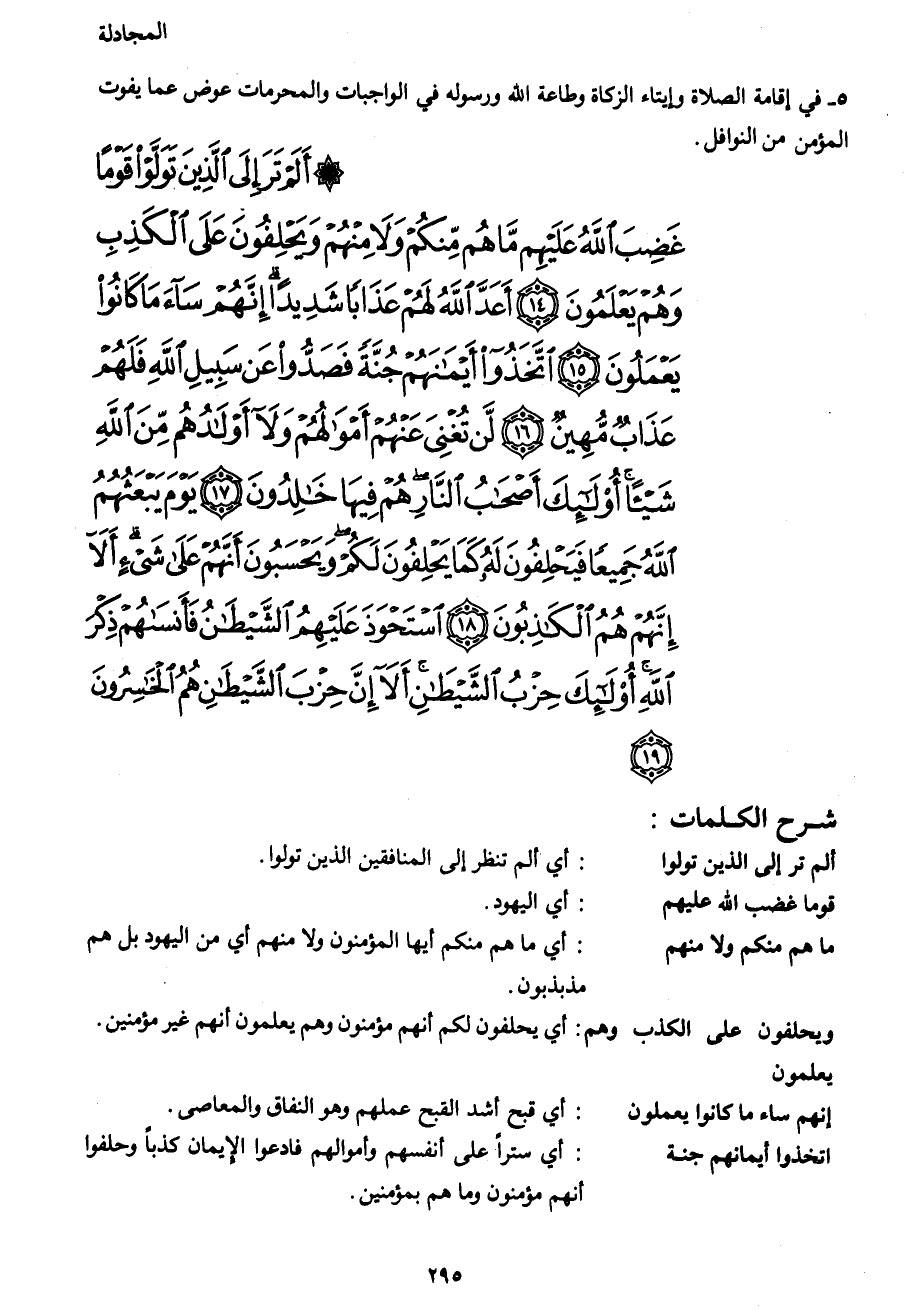 المجادلة
٥ـ في إقامة الصلاة وإيتاء الزكاة وطاعة الله ورسوله في الواجبات والمحرمات عوض عما يفوت
المؤمن من النوافل.
۞ أَلَمْ تَرَ إِلَى ٱلَّذِينَ تَوَلَّوْا۟ قَوْمًا
غَضِبَ ٱللَّهُ عَلَيْهِم مَّا هُم مِّنكُمْ وَلَا مِنْهُمْ وَيَحْلِفُونَ عَلَى ٱلْكَذِبِ
وَهُمْ يَعْلَمُونَ ١٤ أَعَدَّ ٱللَّهُ لَهُمْ عَذَابًا شَدِيدًا ۖ إِنَّهُمْ سَآءَ مَا كَانُوا۟
يَعْمَلُونَ ١٥ ٱتَّخَذُوٓا۟ أَيْمَٰنَهُمْ جُنَّةً فَصَدُّوا۟ عَن سَبِيلِ ٱللَّهِ فَلَهُمْ
عَذَابٌ مُّهِينٌ ١٦ لَّن تُغْنِىَ عَنْهُمْ أَمْوَٰلُهُمْ وَلَآ أَوْلَٰدُهُم مِّنَ ٱللَّهِ
شَيْـًٔا ۚ أُو۟لَٰٓئِكَ أَصْحَٰبُ ٱلنَّارِ ۖ هُمْ فِيهَا خَٰلِدُونَ ١٧ يَوْمَ يَبْعَثُهُمُ
ٱللَّهُ جَمِيعًا فَيَحْلِفُونَ لَهُۥ كَمَا يَحْلِفُونَ لَكُمْ ۖ وَيَحْسَبُونَ أَنَّهُمْ عَلَىٰ شَىْءٍ ۚ أَلَآ
إِنَّهُمْ هُمُ ٱلْكَٰذِبُونَ ١٨ ٱسْتَحْوَذَ عَلَيْهِمُ ٱلشَّيْطَٰنُ فَأَنسَىٰهُمْ ذِكْرَ
ٱللَّهِ ۚ أُو۟لَٰٓئِكَ حِزْبُ ٱلشَّيْطَٰنِ ۚ أَلَآ إِنَّ حِزْبَ ٱلشَّيْطَٰنِ هُمُ ٱلْخَٰسِرُونَ
١٩
شرح الكلمات :
ألم تر إلى الذين تولوا : أي ألم تنظر إلى المنافقين الذين تولوا.
قوما غضب الله عليهم : أي اليهود.
ما هم منكم ولا منهم : أي ما هم منكم أيها المؤمنون ولا منهم أي من اليهود بل هم
مذبذبون.
ويحلفون على الكذب وهم : أي يحلفون لكم أنهم مؤمنون وهم يعلمون أنهم غير مؤمنين.
يعلمون
إنهم ساء ما كانوا يعملون : أي قبح أشد القبح عملهم وهو النفاق والمعاصى.
اتخذوا أيمانهم جنة : أي ستراً على أنفسهم وأموالهم فادعوا الإيمان كذباً وحلفوا
أنهم مؤمنون وما هم بمؤمنين.
٢٩٥